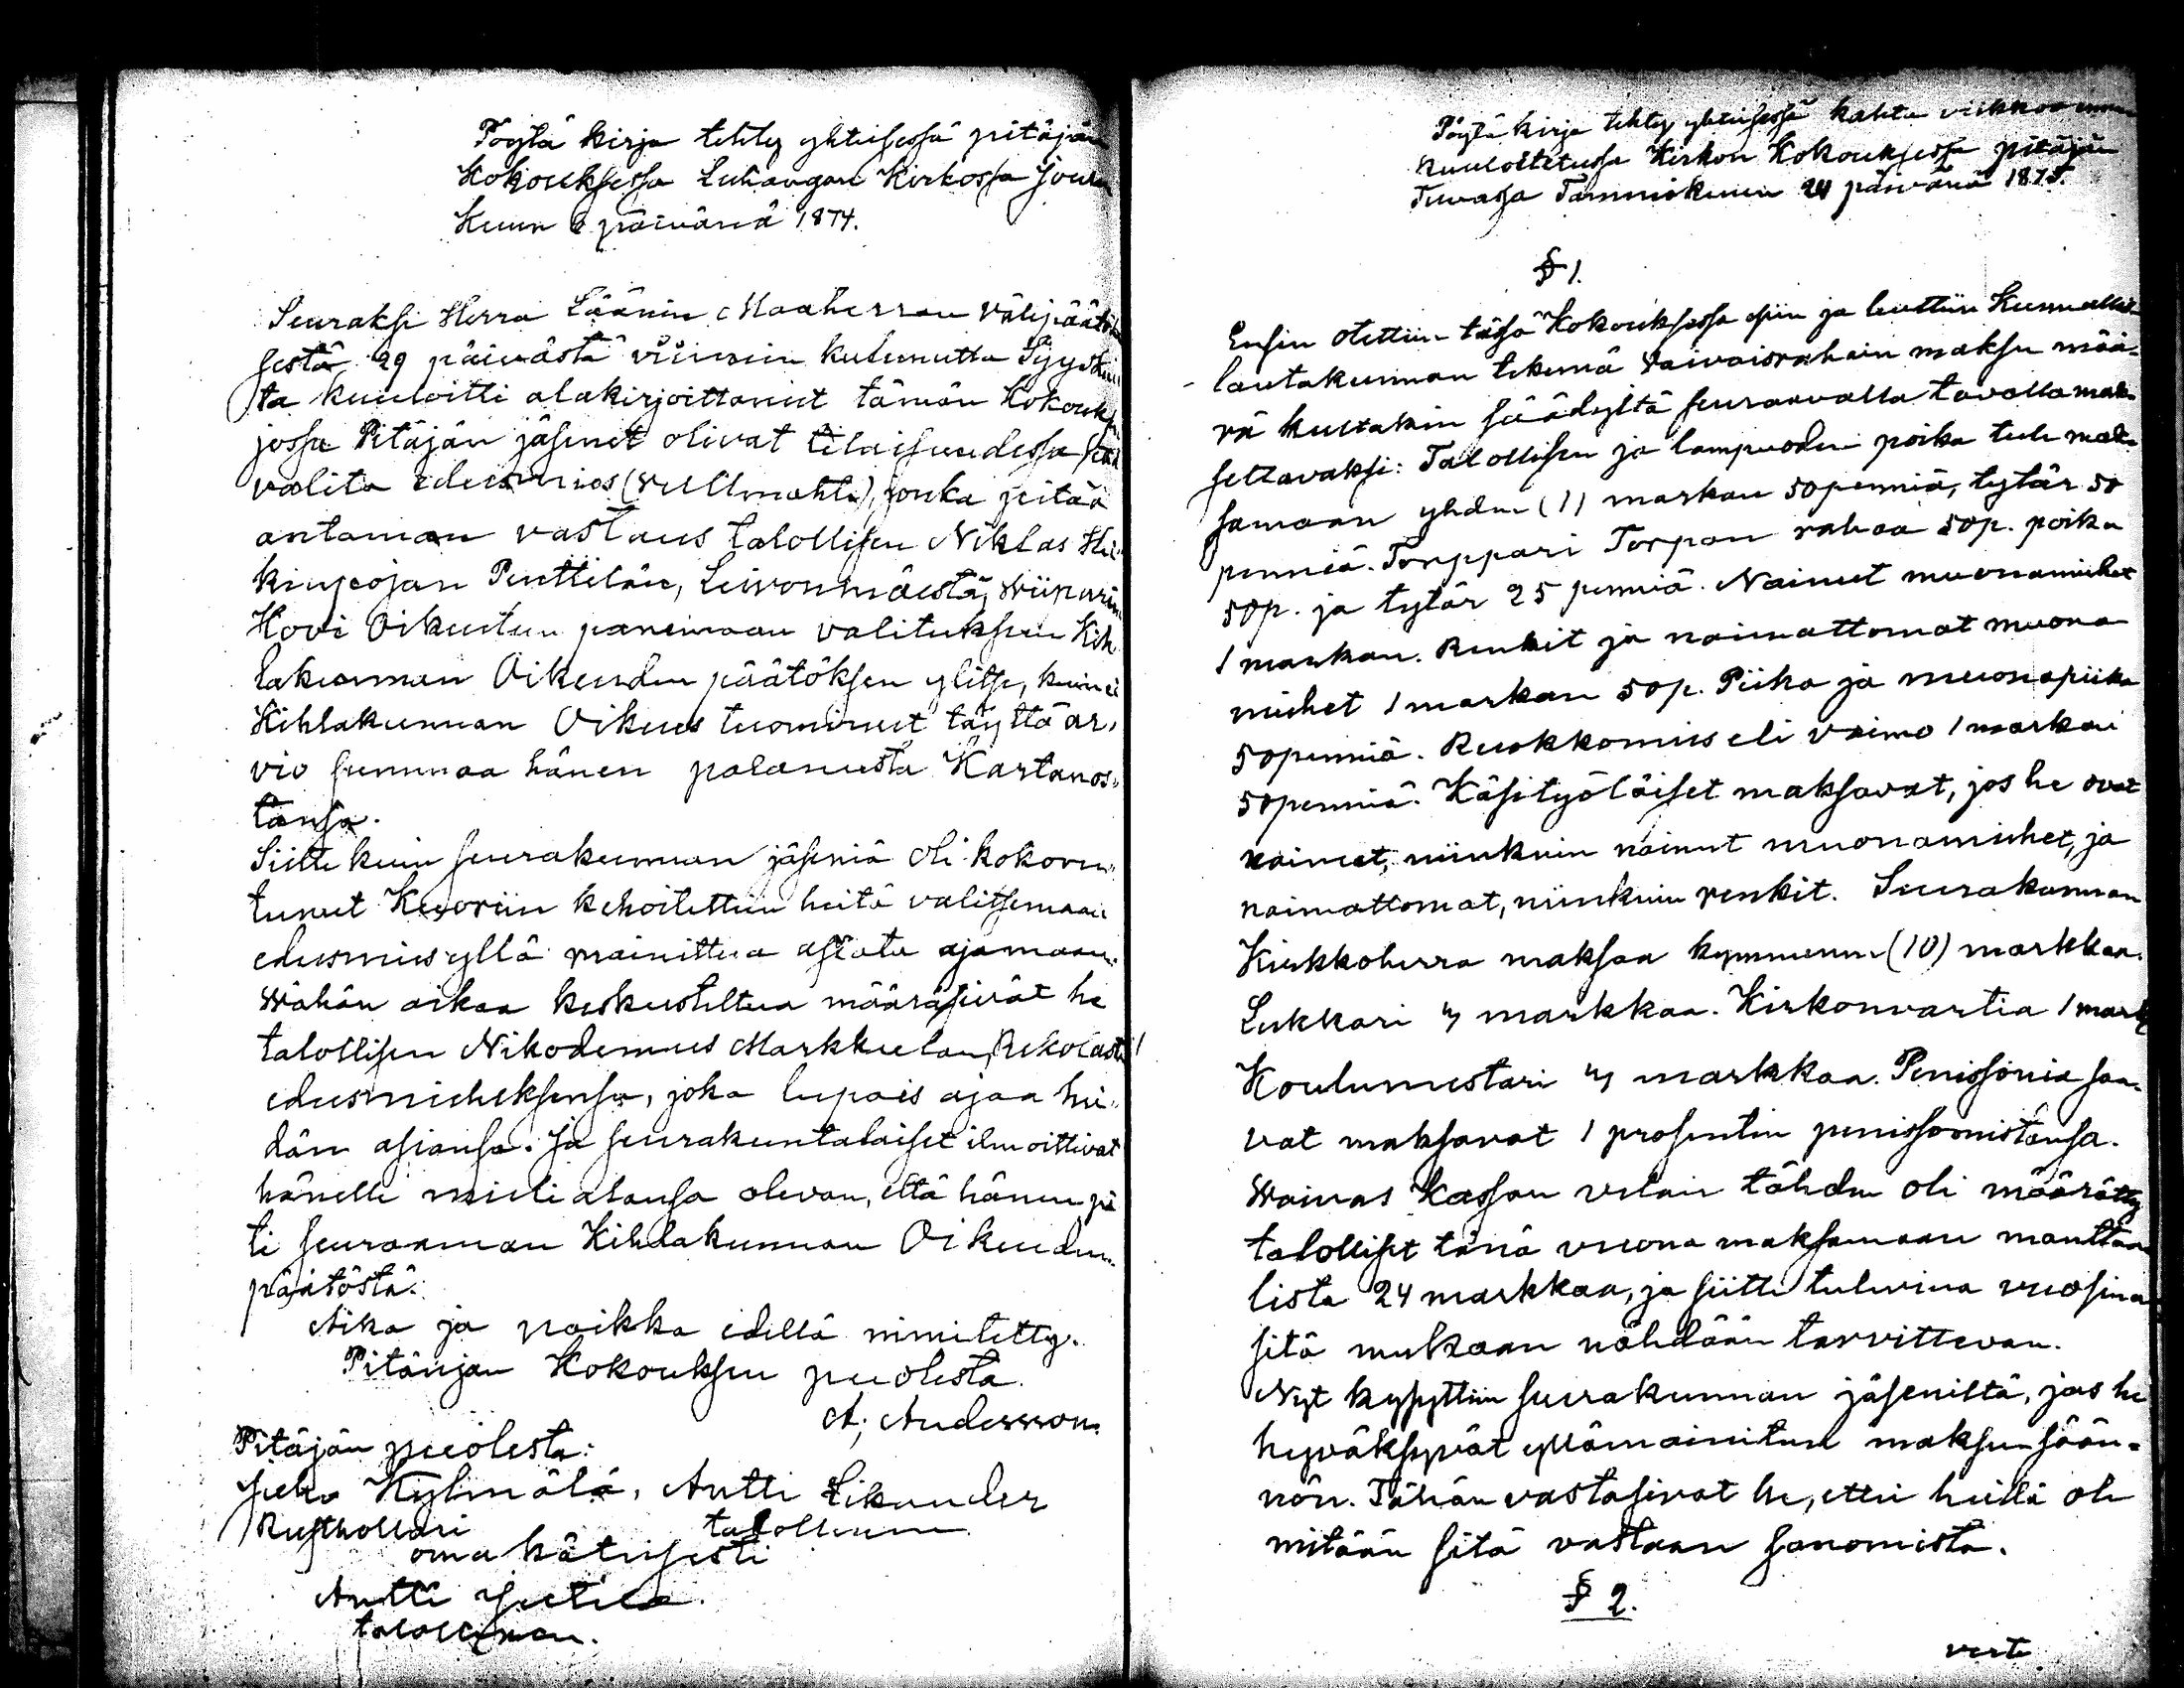 Pöytä kirja tehty yhteisessä pitäjän
Kokouksessa Luhangan Kirkossa Joulu
Kuun 6 päivänä 1874.
Seuraksi Herra Läänin Maaherran välipäätök
sestä 29 päivästä viimein kulunutta Syyskuu
ta kuuloitti alakirjoittanut tämän Kokouks
jossa Pitäjän jäsenet olivat tilaisuudessa
valita edusmies (vullmahti), jonka pitää
antaman vastaus talollisen Niklas
Penttilän, Leivonmäestä, Wiipurin
Hovi Oikeuteen panemaan valituksen Kih
lakunnan Oikeuden päätöksen ylitse, kun ei
Kihlakunnan Oikeus tuominnut täyttä ar-
vio summaa hänen palaneesta Kartanos-
tansa.
Siitte kuin seurakunnan jäseniä oli kokoon-
tunut Kuoriin kehoitettiin heitä valitsemaan
edusmies yllä mainittua asiata ajamaan.
Wähän aikaa keskusteltua määräsivät he
talollisen Nikodemus Markkulan, Rekolasta
edusmieheksensä, joka lupais ajaa hei-
dän asiansa. Ja seurakuntalaiset ilmoittivat
hänelle mielialansa olevan, että hänen pi
ti seuraaman Kihlakunnan Oikeuden
päätöstä.
Aika ja paikka edellä nimitetty.
Pitäijän Kokouksen puolesta
A; Andersson.
Pitäjän puolesta:
Juho Kylmälä, Antti Likander
Rusthollari talollinen
oma kätisesti
Antti Jutila.
talollinen.
Pöytä kirja tehty yhteisessä kahta viikkoa ennen
kuuloitetussa Kirkon Kokouksessa pitäjän
Tuvassa Tammikuun 24 päivänä 1875.
§ 1.
Ensin otettiin tässä Kokouksessa esiin ja luettiin Kunnallis-
lautakunnan tekemä vaivaisrahain maksu mää-
rä kustakin säädyltä seuraavalla tavalla mak-
settavaksi: Talollisen ja lampuodin poika tulee mak-
samaan yhden (1) markan 50 penniä, tytär 50
penniä. Torppari Torpan rahaa 50p. poika
50p. ja tytär 25 penniä. Naineet muonamiehet
1 markan. Renkit ja naimattomat muona
miehet 1 markan 50p. Piika ja muonapiika
50 penniä. Ruokkomies eli vaimo 1 markan
50 penniä. Käsityöläiset maksavat, jos he ovat
naineet, niinkuin naineet muonamiehet, ja
naimattomat, niinkuin renkit. Seurakunnan
Kirkkoherra maksaa kymmenen (10) markkaa.
Lukkari 4 markkaa. Kirkonvartia 1 mark
Koulumestari 4 markkaa. Penissiönia saa-
vat maksavat 1 prosentin penissionistansa.
Waivas Kassan velan tähden oli määrätty
talolliset tänä vuona maksamaan manttaa
lista 24 markkaa, ja siitte tulevina vuosina
sitä mukaan nähdään tarvittevan.
Nyt kysyttiin seurakunnan jäseniltä, jos he
hyväksyvät yllämainitun maksun sään-
nön. Tähän vastasivat he, ettei heillä ole
mitään sitä vastaan sanomista.
§ 2.
verte